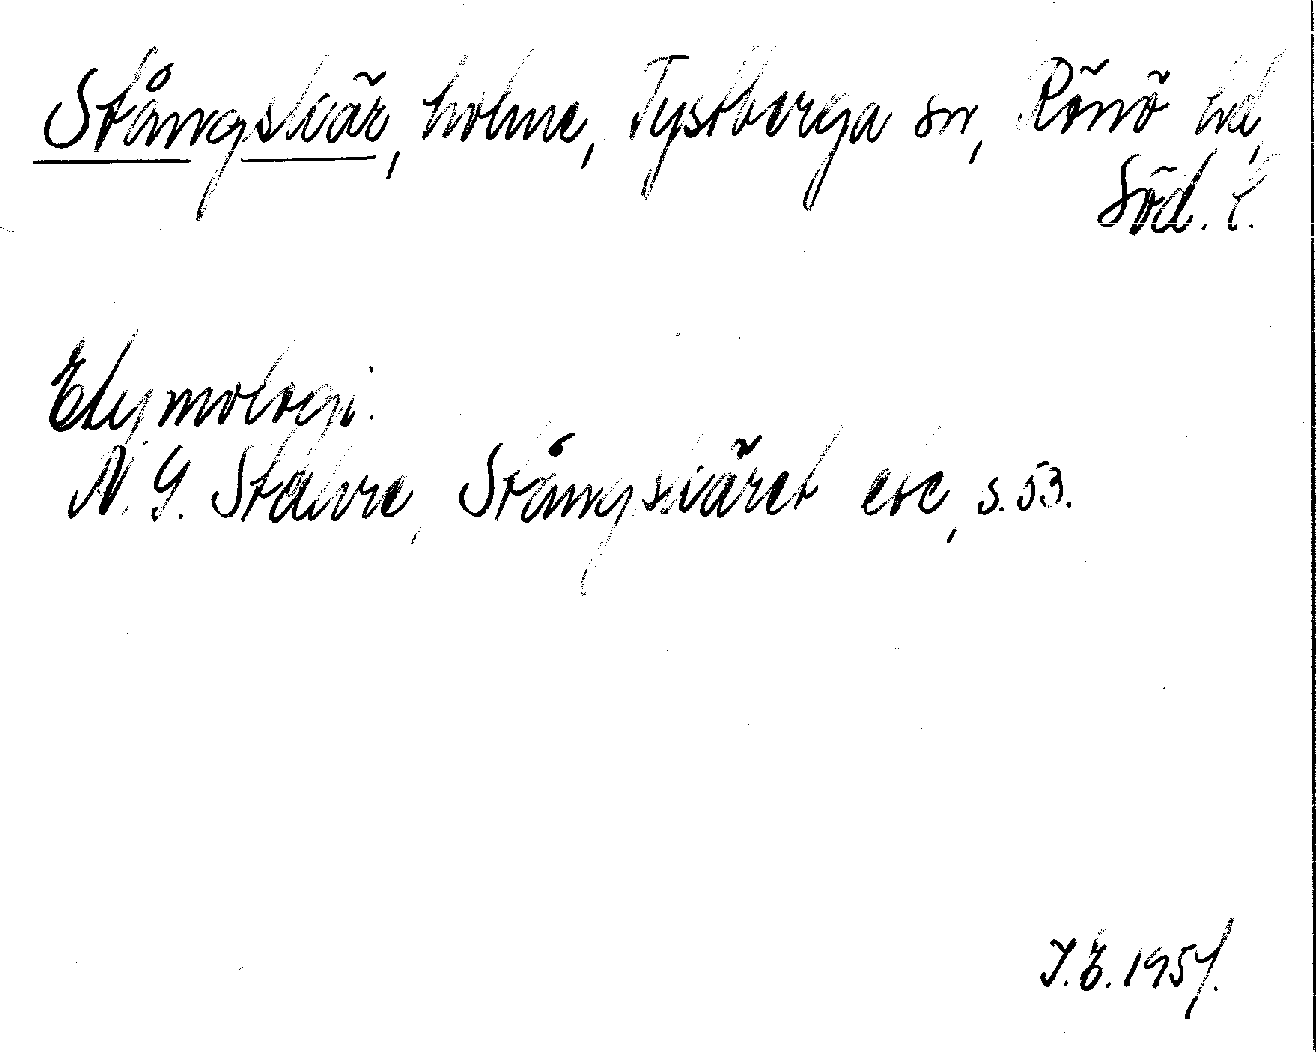 Stångskär, holme, Tystberga sn, Rönö hd,
Söd. l.
Etymologi.
N. G. Stahre, Stångskäret etc, s. 53.
I. E. 1957.